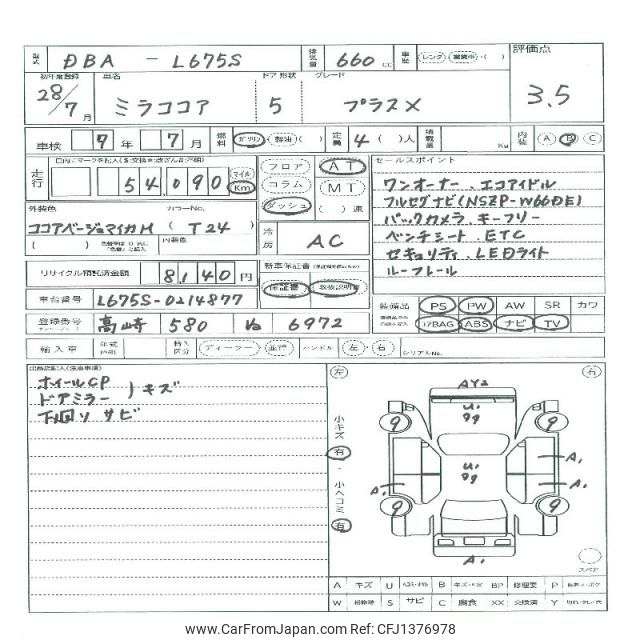 型式 DBA - L675S 排気量 660 cc 車歴 レンタ 営業車 ( ) 評価点
初年度登録 車名 ドア 形状 グレード
28/7月 ミラココア 5 プラスX 3.5
車検 9年 7月 燃料 ガソリン 軽油 ( ) 定員 4( )人 積載量 Kg 内装 A B C
走行 54,090 マイル Km フロア AT セールスポイント
コラム MT ワンオーナー、エコアイドル
ダッシュ ( )速 フルセグナビ(NSZP-W66DE)
外装色 カラーNo. バックカメラ、キーフリー
ココアベージュマイカM (T24) 冷房 AC ベンチシート、ETC
( ) 内装色 セキュリティ、LEDライト
リサイクル預託済金額 8140円 新車保証書 ルーフレール
保証書 取扱説明書
車台番号 L675S-0214877 装備品 PS PW AW SR カワ
登録番号 高崎 580 ね 6972 I7BAG ABS ナビ TV
輸入車 年式 輸入区分 ディーラー・並行 ハンドル 左・右 シリアルNo.
ホイールCP
ドアミラー )キズ
下回り サビ
左 右
小キズ 有・小ヘコミ 有
AY2
U1
99
9 9
U1
99
A1
A1 A1
9 9
A1
スペア
A キズ U B BP 修理要 P
W S サビ C 腐食 XX 交換済 Y
www.CarFromJapan.com - CFJ1376978